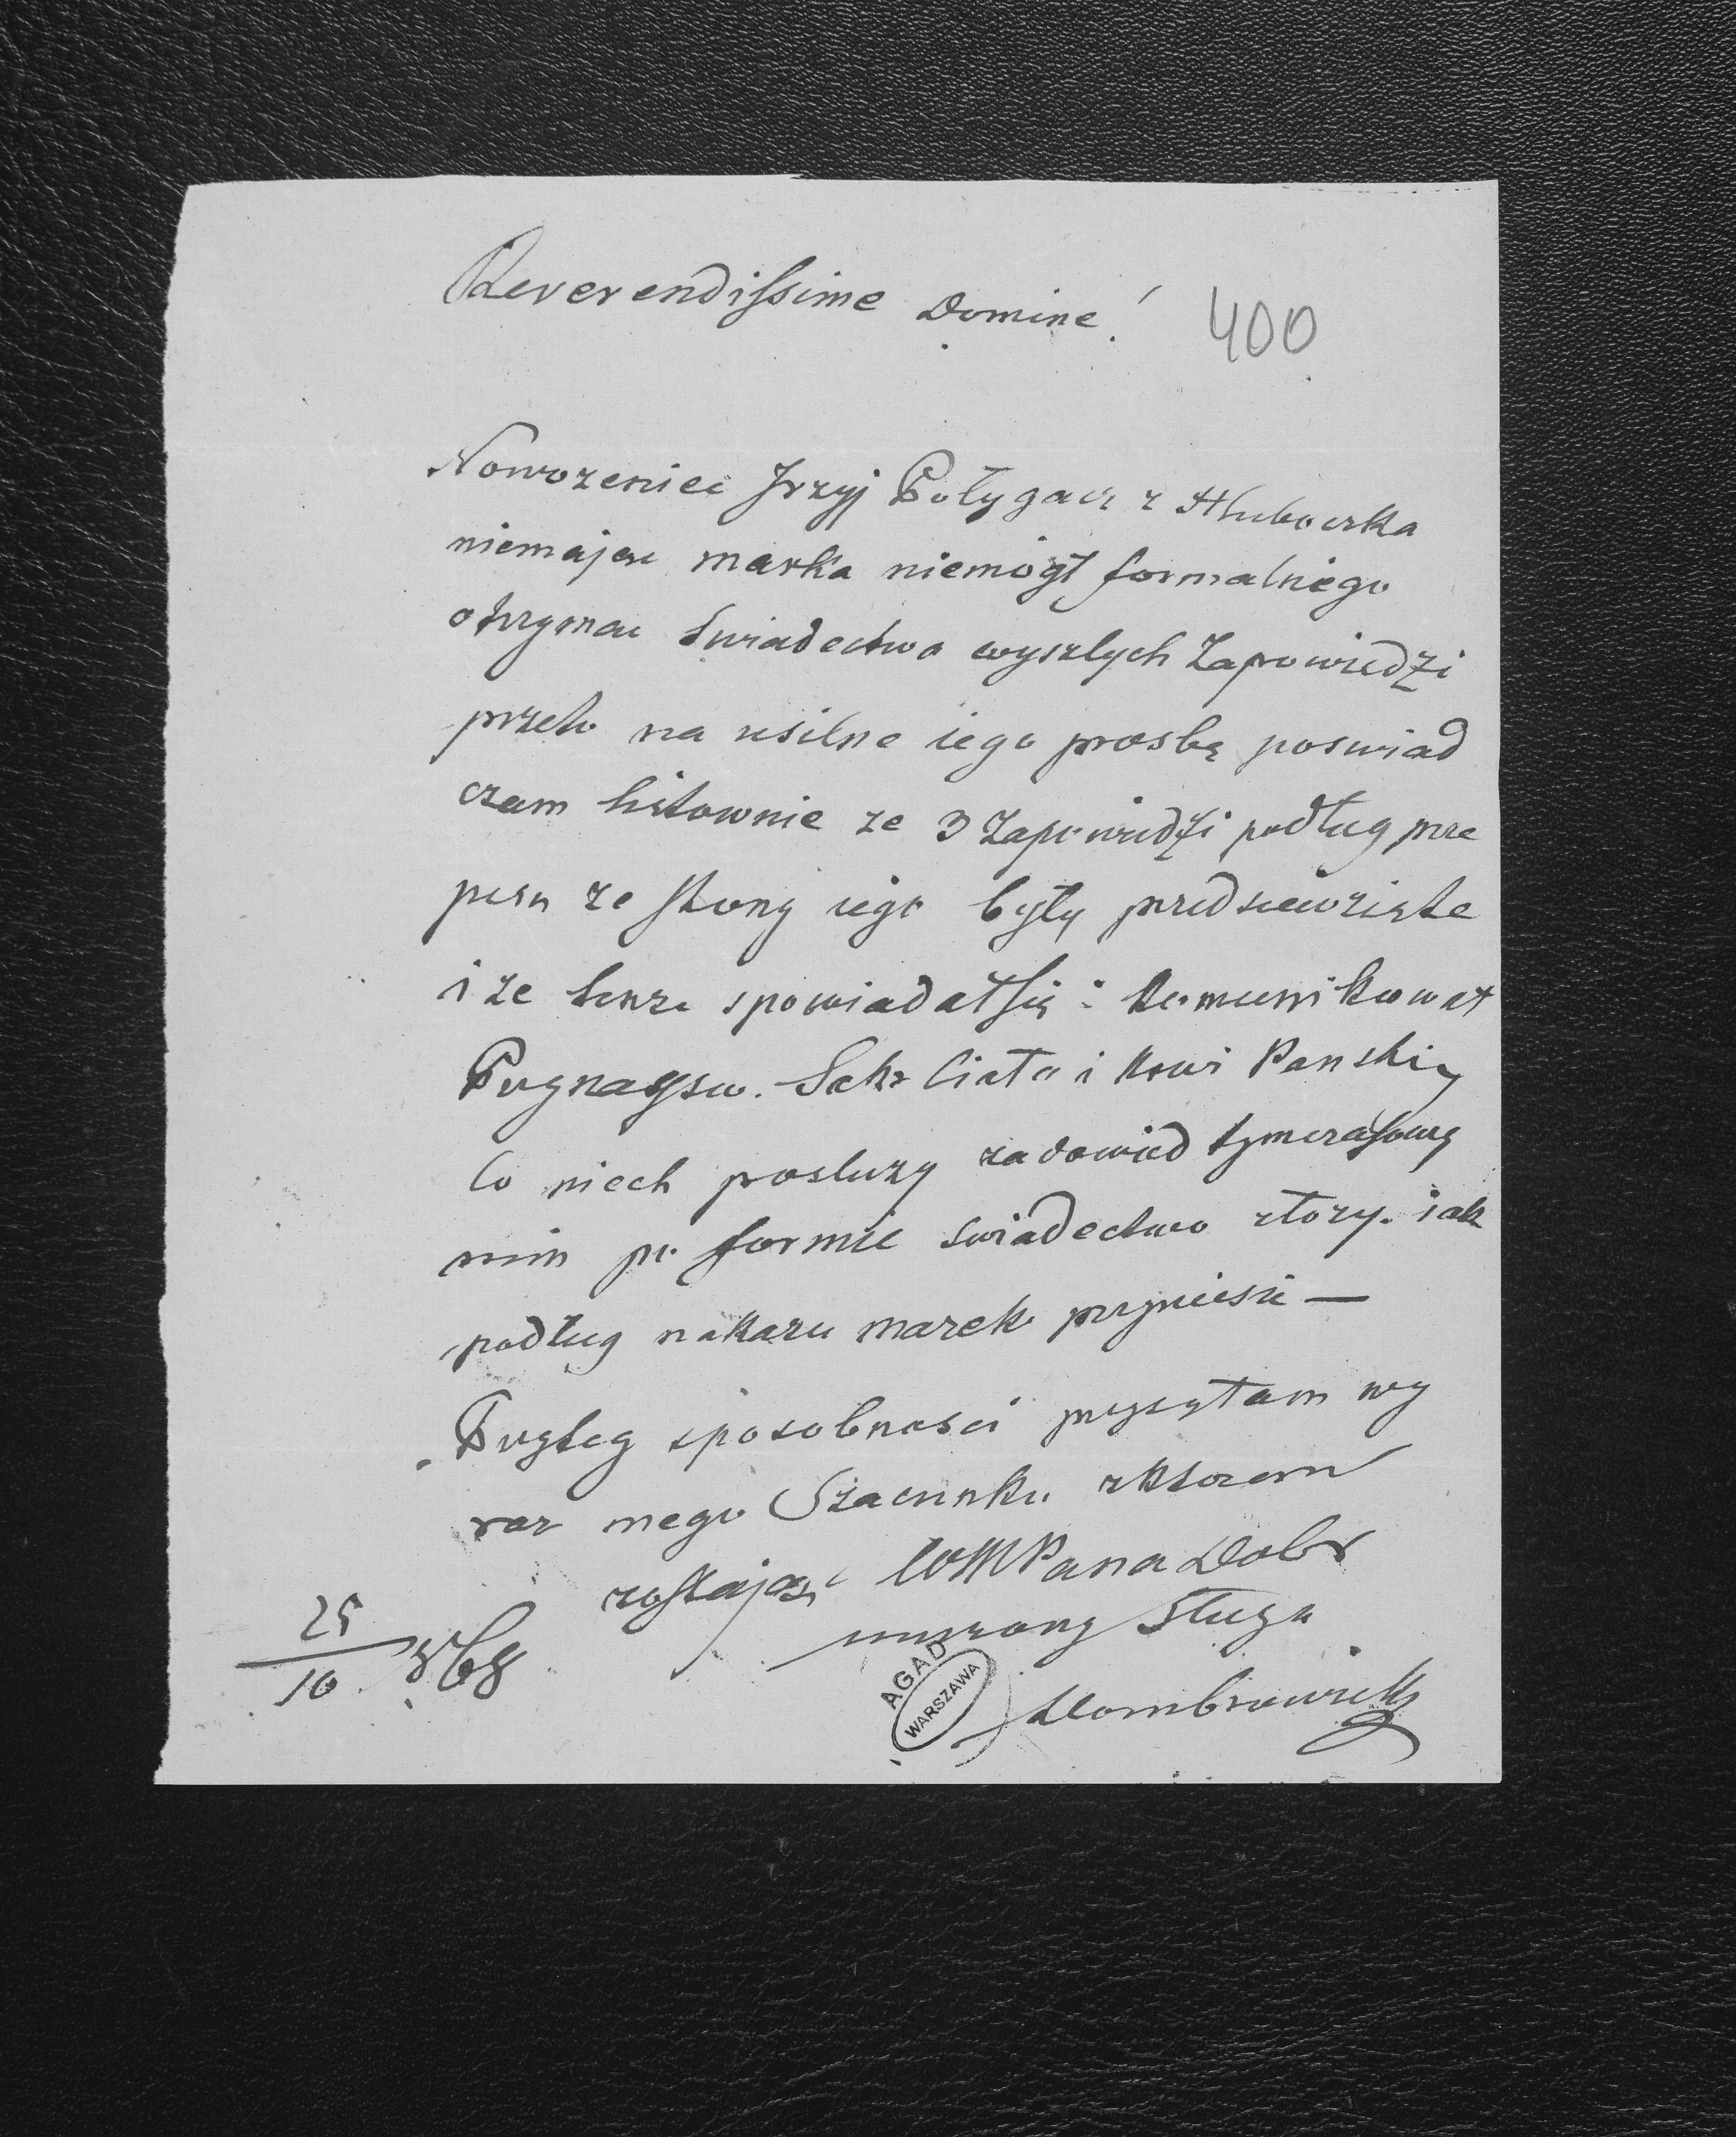 Reverendissime Domine!
400
Nowozeniec Jrzyj Połygacz z Hluboczka
niemajac marka niemógł formalnego
otrzymac swiadectwa wyszlych Zapowiedzi
przeto na usilne iego prosbę poswiad
czam listownie ze 3 Zapowiedzi podług prze
pisu ze strony iego były przedsiewzięte
i ze tenze spowiadał się i komunikował
Przynaysw. Sakr Ciała i Krwi Panskiy
Co niech posluzy za dowod tymczasowy
nim po formie swiadectwo złozy. iak
podług nakazu marek przyniesie —
Przyteg sposobnosci przysyłam wy
raz mego Szacunku zktorem
zostając WMPana Dobr
unizony Sługa
Dombrowicki
25
10 868
AGAD
WARSZAWA